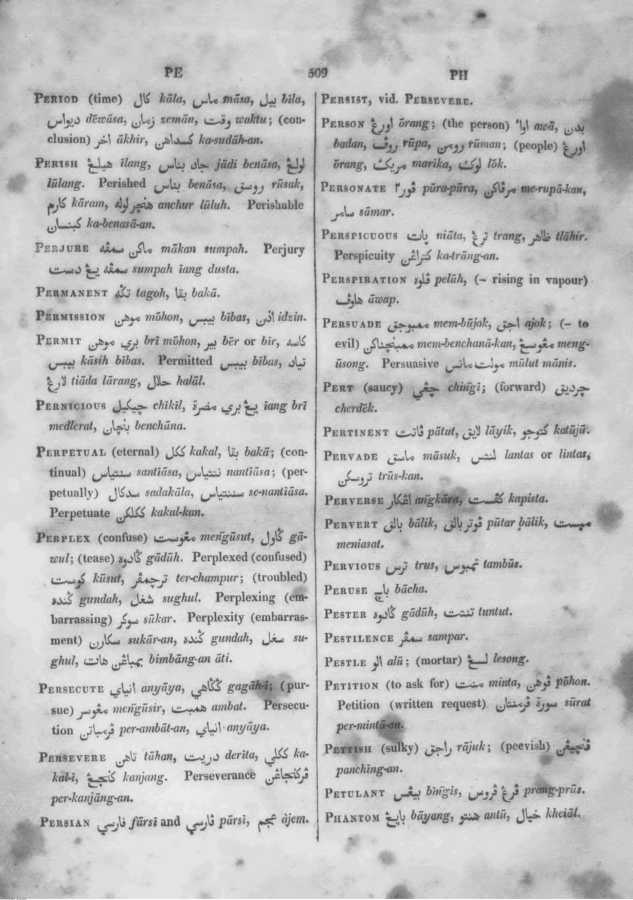 PE
509
PH
PERIOD (time) كال kāla, ماس māsa, بيل bila,
ديواس dēwāsa, زمان zemān, وقت waktu; (con-
clusion) اخر ākhir, كسداهن ka-sudāh-an.
PERISH هيلڠ ilang, جاد بناس jādi benāsa, لولڠ
lūlang. Perished بناس benāsa, روسق rūsuk,
كارم kāram, هنچر لوله anchur lūluh. Perishable
كبناسن ka-benasā-an.
PERJURE ماكن سمڤه mākan sumpah. Perjury
سمڤه يڠ دست sumpah iang dusta.
PERMANENT تڬه tagoh, بقا bakā.
PERMISSION موهن mūhon, بيبس bibas, اذن idzin.
PERMIT بري موهن brī mūhon, بير bēr or bir, كاسه
بيبس kāsih bibas. Permitted بيبس bibas, تياد
لارڠ tiāda lārang, حلال halāl.
PERNICIOUS چيكيل chikil, يڠ بري مضرة iang brī
medlerat, بنچان benchāna.
PERPETUAL (eternal) ككل kakal, بقا bakā; (con-
tinual) سنتياس santiāsa, نتياس nantiāsa; (per-
petually) سدكال sadakāla, سنتياس se-nantiāsa.
Perpetuate ككلكن kakal-kan.
PERPLEX (confuse) مڠوست mengūsut, ڬاول gā-
wul; (tease) ڬادوه gādūh. Perplexed (confused)
كوست kūsut, ترچمڤر ter-champur; (troubled)
ڬنده gundah, شغل sughul. Perplexing (em-
barrassing) سوكر sūkar. Perplexity (embarras-
ment) سكارن sukār-an, ڬنده gundah, سغل su-
ghul, بمباڠن هات bimbāng-an āti.
PERSECUTE انياي anyāya, ڬڬاهي gagāh-ī; (pur-
sue) مڠوسر mengūsir, همبت ambat. Persecu-
tion ڤرمباتن per-ambāt-an, انياي anyāya.
PERSEVERE تاهن tāhan, دريت derita, ككلي ka-
kāl-i, كنجڠ kanjang. Perseverance ڤركنجاڠن
per-kanjāng-an.
PERSIAN فارسي fārsī and ڤارسي pārsi, عجم ājem.
PERSIST, vid. PERSEVERE.
PERSON اورڠ ōrang; (the person) اوا awā, بدن
badan, روڤ rūpa, رومن rūman; (people) اورڠ
ōrang, مريك marika, لوك lōk.
PERSONATE ڤور٢ pūra-pūra, مرڤاكن me-rupā-kan,
سامر sāmar.
PERSPICUOUS نيات niāta, ترڠ trang, ظاهر tlāhir.
Perspicuity كتراڠن ka-trāng-an.
PERSPIRATION ڤلوه pelūh, (– rising in vapour)
هاوڤ āwap.
PERSUADE ممبوجق mem-būjok, اجق ajok; (– to
evil) ممبنچناكن mem-benchanā-kan, مڠوسڠ meng-
ūsong. Persuasive مولت مانس mūlut mānis.
PERT (saucy) چڠي chingi; (forward) چرديق
cherdēk.
PERTINENT ڤاتت pātat, لايق lāyik, كتوجو katūjū.
PERVADE ماسق māsuk, لنتس lantas or lintas,
تروسكن trūs-kan.
PERVERSE اڠكار angkāra, كفست kapista.
PERVERT بالق bālik, ڤوتر بالق pūtar bālik, منيست
meniasat.
PERVIOUS ترس trus, تمبوس tambūs.
PERUSE باچ bācha.
PESTER ڬادوه gādūh, تنتت tuntut.
PESTILENCE سمڤر sampar.
PESTLE الو alū; (mortar) لسڠ lesong.
PETITION (to ask for) منت minta, ڤوهن pōhon.
Petition (written request) سورة ڤرمنتان sūrat
per-mintā-an.
PETTISH (sulky) راجق rājuk; (peevish) ڤنچيڠن
panching-an.
PETULANT بيڠس bingis, ڤرڠ ڤروس prang-prūs.
PHANTOM بايڠ bāyang, هنتو antū, خيال kheiāl.